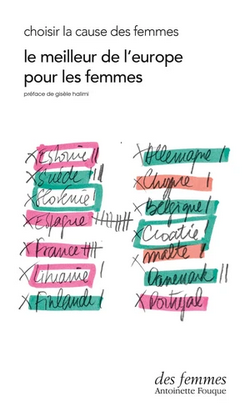 choisir la cause des femmes
le meilleur de l'europe
pour les femmes
préface de gisèle halimi
Estonie
Suède
Slovénie
Espagne
France
Lithuanie
Finlande
Allemagne
Chypre
Belgique
Croatie
malte
Danemark
Portugal
des femmes
Antoinette Fouque